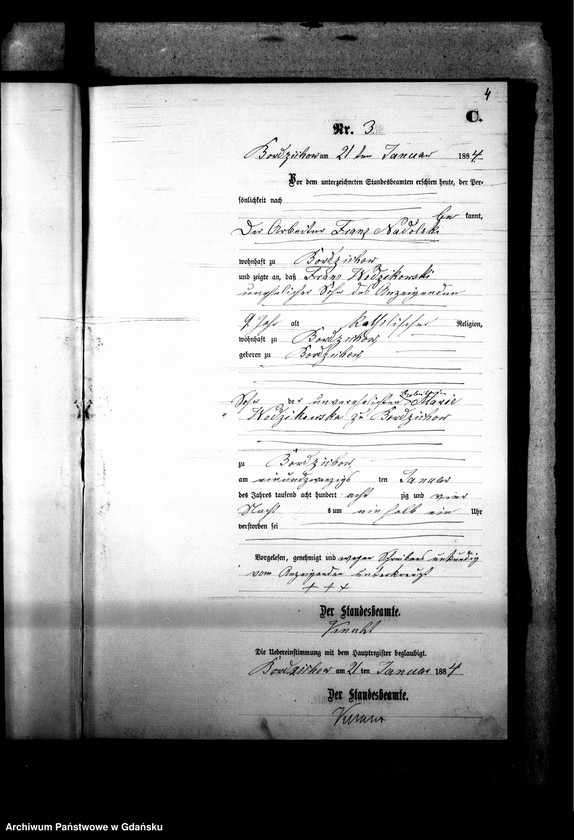 4
C.
Nr. 3
Bordzichow am 21 ten Januar 1884
Vor dem unterzeichneten Standesbeamten erschien heute, der Per-
sönlichkeit nach
be kannt,
Der Arbeiter Franz Nadolski
wohnhaft zu Bordzichow
und zeigte an, daß Franz Wodzikowski
unehelicher Sohn des Anzeigenden
9 Jahr alt katholischer Religion,
wohnhaft zu Bordzichow,
geboren zu Bordzichow
Sohn der unverehelichten Marie
Wodzikowska zu Bordzichow
zu Bordzichow,
am einundzwanzigs ten Januar
des Jahres tausend acht hundert acht zig und vier
Nacht s um ein halb ein Uhr
verstorben sei
Vorgelesen, genehmigt und wegen Schreibens unkundig
vom Anzeigenden unterkreuzt
+ + +
Der Standesbeamte.
Die Uebereinstimmung mit dem Hauptregister beglaubigt.
Bordzichow am 21 ten Januar 1884
Der Standesbeamte.
Archiwum Państwowe w Gdańsku